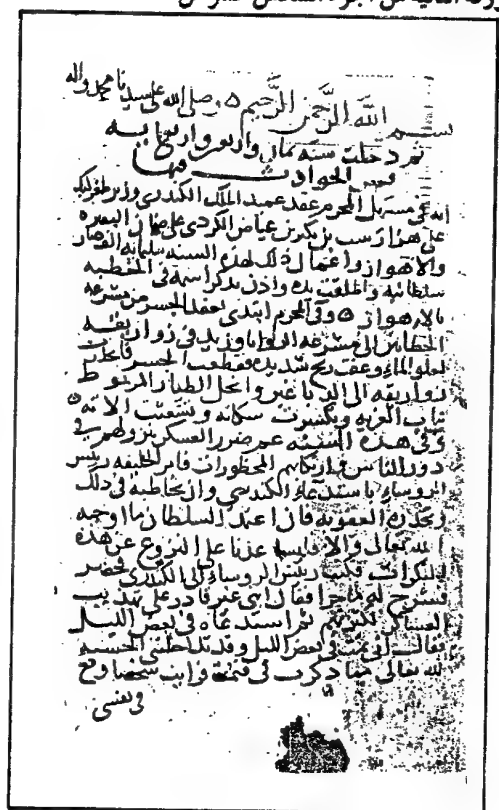 بسم الله الرحمن الرحيم ه وصلى الله على سيدنا محمد واله
ثم دخلت سنه ثمان واربعين واربع مايه
فمن الحوادث فيها
انه في مستهل المحرم عقد عميد الملك الكندري وزير طغرلبك
على هزارسب بن بكرىر عياض الكردي على ضمان البصره
والاهواز واعمال ذلك لهذه السنه بثلثمايه الف دينار
سلطانيه واطلقت يده واذن بذكر اسمه في الخطبه
بالاهواز ه وفي المحرم ابتدى بعقد الجسر من مشرعه
الحطابين الى مشرعه الروايا وزيد في زواريقه
لعلو الماء وعقت ريح شديده فقطعت الجسر
زواريقه الى الدباغين وانحل الطيار المربوط
بباب الغربه وتكسرت سكانه وتشعثت الاته ه
وفي هذه السنه عم ضرر العسكر بنزولهم في
دور الناس وارتكابهم المحظورات فامر الخليفه رئيس
الروساء باستدعاء الكندري وان يخاطبه في ذلك
ويحذره العقوبه فان اعتمد السلطان ما اوجبه
الله تعالى والا عزنا على النزوح عن هذه
المنكرات فكتب رئيس الروساء الى الكندري فحضر
فشرح له ما جرا فقال اني غير قادر على تهذيب
العساكر لكثرتهم ثم استدعاه في بعض الليل
فقال اني نمت في بعض الليل وقد تداخلني الخشيه
لله تعالى مما ذكرت فرايت شخصا وقع
في نفسي